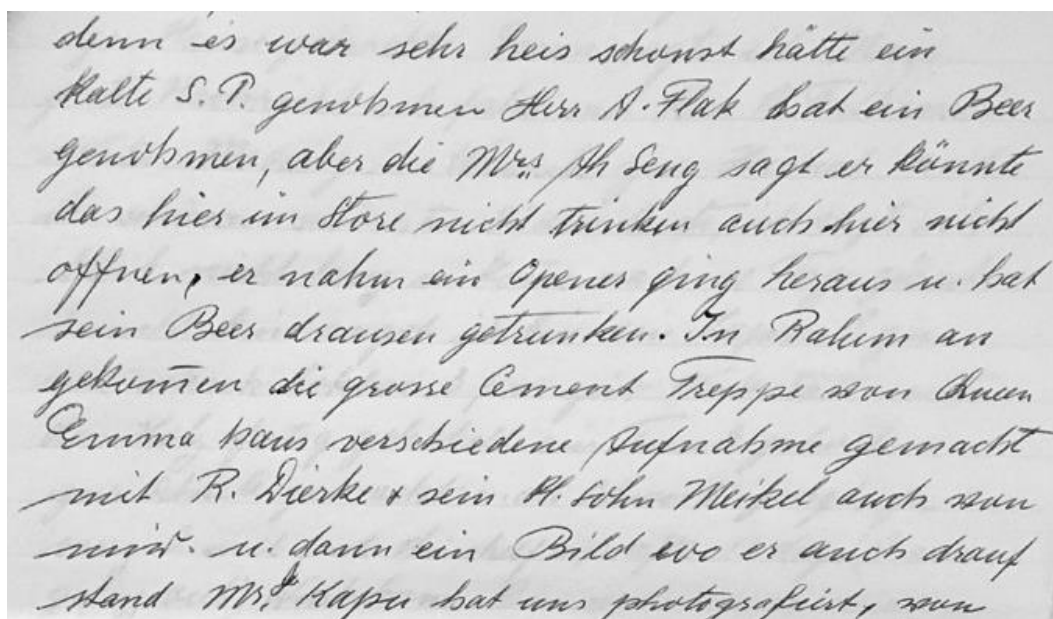 denn es war sehr heis schonst hätte ein
Kalte S.P. genohmen Herr A. Flak hat ein Beer
genohmen, aber die Mrs. Ah Seng sagt er könnte
das hier im Store nicht trinken auch hier nicht
offnen, er nahm ein Opener ging heraus u. hat
sein Beer drausen getrunken. In Ralum an
gekom̄en die grosse Cement Treppe von Queen
Emma haus verschiedene Aufnahme gemacht
mit R. Dierke + sein kl. Sohn Meikel auch von
mir. u. dann ein Bild wo er auch drauf
stand Mrs. Kapu hat uns photografiert, von